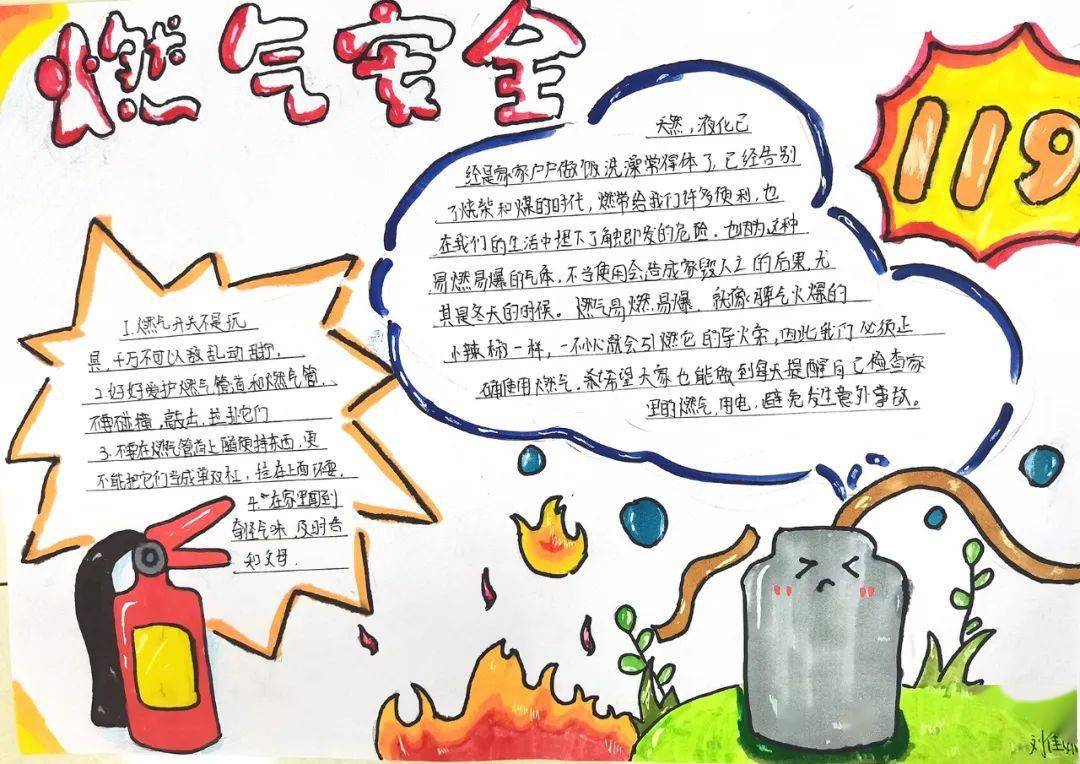 燃气安全
119
天然,液化已
经是家家户户做饭洗澡常得体了,已经告别
了烧柴和煤的时代,燃带给我们许多便利,也
在我们的生活中埋下了触即发的危险.也因为这种
易燃易爆的气体,不当使用会造成家毁人亡的后果,尤
其是冬天的时候。燃气易燃易爆,就像脾气火爆的
小辣椒一样,一不小心就会引燃它的导火索,因此我们必须正
确使用燃气.希望大家也能做到每天提醒自己检查家
里的燃气,用电,避免发生意外事故。
1.燃气开关不是玩
具,千万不可以敲乱动
2.好好爱护燃气管道和燃气管,
不要碰撞,敲击,拉扯它们
3.不要在燃气管道上随便挂东西,更
不能把它们当成单双杠,挂在上面玩耍.
4.在家里闻到
奇怪气味,及时告
知父母.
刘佳